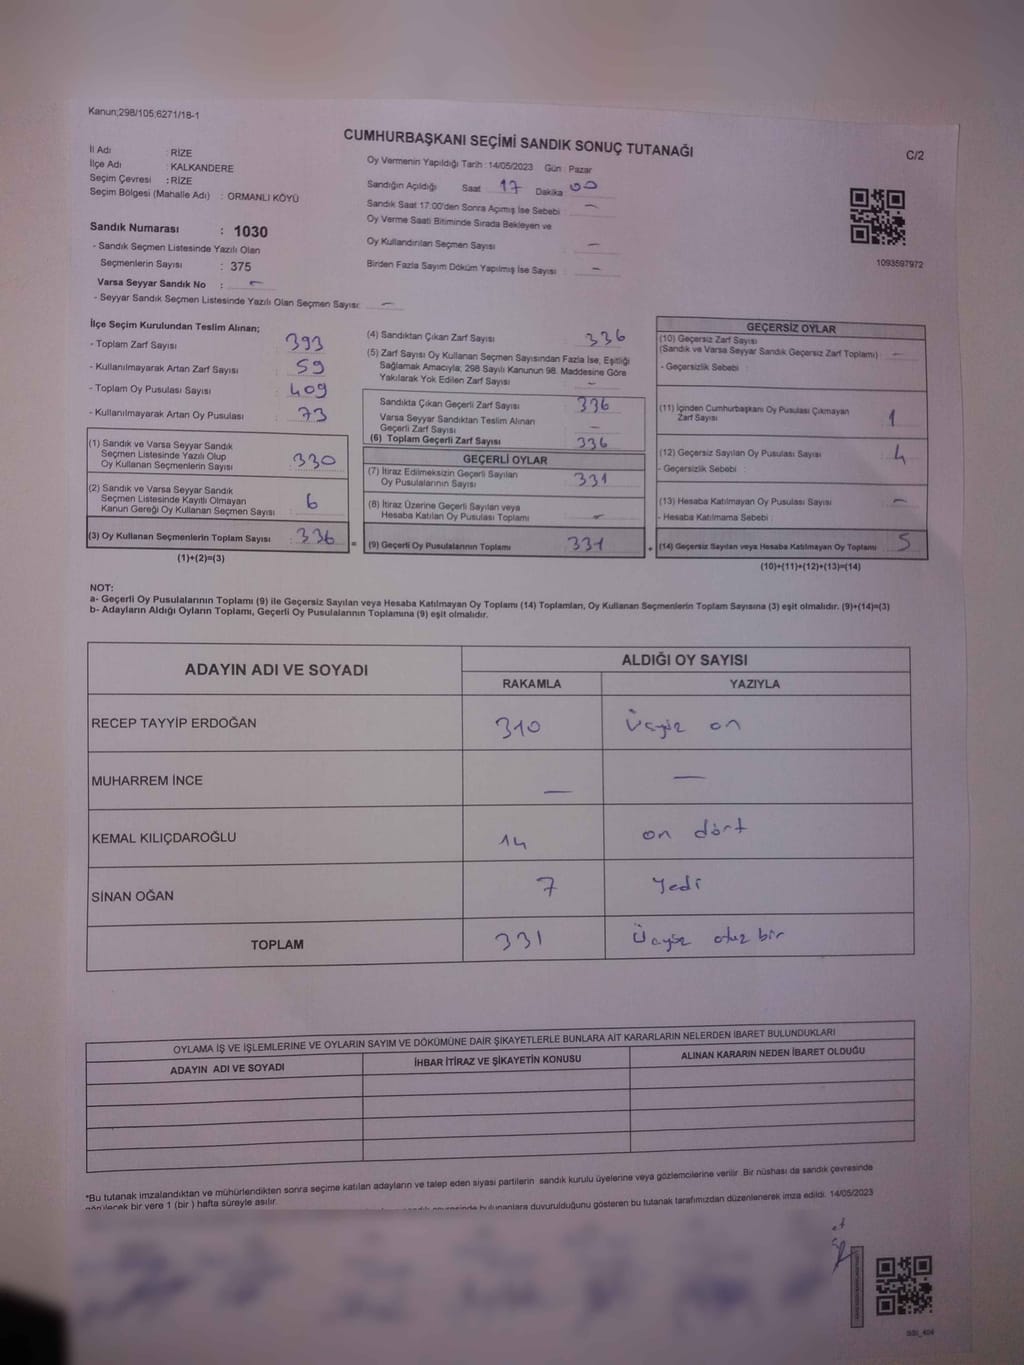 Kanun;298/105;6271/18-1
CUMHURBAŞKANI SEÇİMİ SANDIK SONUÇ TUTANAĞI
C/2
İl Adı : RİZE
İlçe Adı : KALKANDERE
Seçim Çevresi : RİZE
Seçim Bölgesi (Mahalle Adı) : ORMANLI KÖYÜ
Sandık Numarası : 1030
- Sandık Seçmen Listesinde Yazılı Olan
Seçmenlerin Sayısı : 375
Varsa Seyyar Sandık No : -
- Seyyar Sandık Seçmen Listesinde Yazılı Olan Seçmen Sayısı: -
Oy Vermenin Yapıldığı Tarih : 14/05/2023 Gün : Pazar
Sandığın Açıldığı Saat 17 Dakika 00
Sandık Saat 17:00'den Sonra Açımış İse Sebebi : -
Oy Verme Saati Bitiminde Sırada Bekleyen ve
Oy Kullandırılan Seçmen Sayısı -
Birden Fazla Sayım Döküm Yapılmış İse Sayısı : -
1093597972
İlçe Seçim Kurulundan Teslim Alınan;
- Toplam Zarf Sayısı 393
- Kullanılmayarak Artan Zarf Sayısı 59
- Toplam Oy Pusulası Sayısı 409
- Kullanılmayarak Artan Oy Pusulası 73
(1) Sandık ve Varsa Seyyar Sandık
Seçmen Listesinde Yazılı Olup
Oy Kullanan Seçmenlerin Sayısı 330
(2) Sandık ve Varsa Seyyar Sandık
Seçmen Listesinde Kayıtlı Olmayan
Kanun Gereği Oy Kullanan Seçmen Sayısı 6
(3) Oy Kullanan Seçmenlerin Toplam Sayısı 336
(1)+(2)=(3)
(4) Sandıktan Çıkan Zarf Sayısı 336
(5) Zarf Sayısı Oy Kullanan Seçmen Sayısından Fazla İse, Eşitliği
Sağlamak Amacıyla; 298 Sayılı Kanunun 98. Maddesine Göre
Yakılarak Yok Edilen Zarf Sayısı -
Sandıkta Çıkan Geçerli Zarf Sayısı 336
Varsa Seyyar Sandıktan Teslim Alınan
Geçerli Zarf Sayısı -
(6) Toplam Geçerli Zarf Sayısı 336
GEÇERLİ OYLAR
(7) İtiraz Edilmeksizin Geçerli Sayılan
Oy Pusulalarının Sayısı 331
(8) İtiraz Üzerine Geçerli Sayılan veya
Hesaba Katılan Oy Pusulası Toplamı -
= (9) Geçerli Oy Pusulalarının Toplamı 331 +
GEÇERSİZ OYLAR
(10) Geçersiz Zarf Sayısı
(Sandık ve Varsa Seyyar Sandık Geçersiz Zarf Toplamı) -
- Geçersizlik Sebebi :
(11) İçinden Cumhurbaşkanı Oy Pusulası Çıkmayan
Zarf Sayısı 1
(12) Geçersiz Sayılan Oy Pusulası Sayısı 4
- Geçersizlik Sebebi :
(13) Hesaba Katılmayan Oy Pusulası Sayısı -
- Hesaba Katılmama Sebebi :
(14) Geçersiz Sayılan veya Hesaba Katılmayan Oy Toplamı 5
(10)+(11)+(12)+(13)=(14)
NOT:
a- Geçerli Oy Pusulalarının Toplamı (9) ile Geçersiz Sayılan veya Hesaba Katılmayan Oy Toplamı (14) Toplamları, Oy Kullanan Seçmenlerin Toplam Sayısına (3) eşit olmalıdır. (9)+(14)=(3)
b- Adayların Aldığı Oyların Toplamı, Geçerli Oy Pusulalarının Toplamına (9) eşit olmalıdır.
ADAYIN ADI VE SOYADI ALDIĞI OY SAYISI
RAKAMLA YAZIYLA
RECEP TAYYİP ERDOĞAN 310 Üçyüz on
MUHARREM İNCE - -
KEMAL KILIÇDAROĞLU 14 on dört
SİNAN OĞAN 7 Yedi
TOPLAM 331 Üçyüz otuz bir
OYLAMA İŞ VE İŞLEMLERİNE VE OYLARIN SAYIM VE DÖKÜMÜNE DAİR ŞİKAYETLERLE BUNLARA AİT KARARLARIN NELERDEN İBARET BULUNDUKLARI
ADAYIN ADI VE SOYADI İHBAR İTİRAZ VE ŞİKAYETİN KONUSU ALINAN KARARIN NEDEN İBARET OLDUĞU
*Bu tutanak imzalandıktan ve mühürlendikten sonra seçime katılan adayların ve talep eden siyasi partilerin sandık kurulu üyelerine veya gözlemcilerine verilir. Bir nüshası da sandık çevresinde
görülecek bir yere 1 (bir) hafta süreyle asılır.
bulunanlara duyurulduğunu gösteren bu tutanak tarafımızdan düzenlenerek imza edildi. 14/05/2023